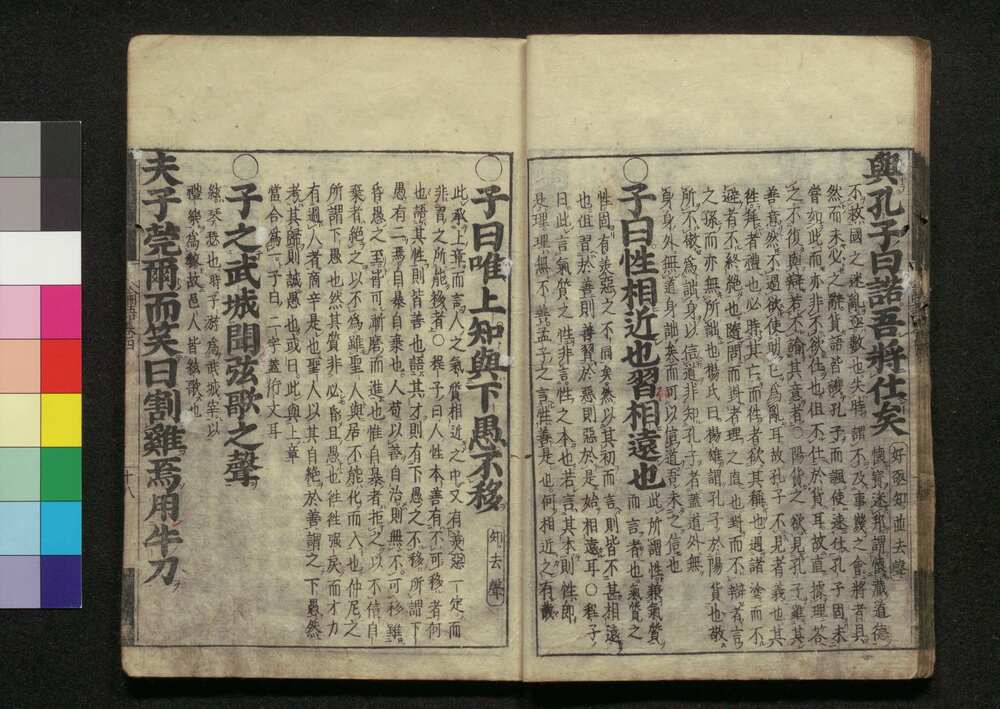 與孔子曰諾吾將仕矣
好亟知並去聲
懷寶迷邦謂懷藏道德
不救國之迷亂亟數也失時謂不及事幾之會將者且
然而未必之辭貨語皆譏孔子而諷使速仕孔子固未
嘗如此而亦非不欲仕也但不仕於貨耳故直據理答
之不復與辯若不諭其意者○陽貨之欲見孔子雖其
善意然不過欲使助己為亂耳故孔子不見者義也其
往拜者禮也必時其亡而往者欲其稱也遇諸塗而不
避者不終絶也隨問而對者理之直也對而不辯者言
之孫而亦無所詘也楊氏曰楊雄謂孔子於陽貨也敬
所不敬為詘身以信道非知孔子者蓋道外無
身身外無道身詘矣而可以信道吾未之信也
○子曰性相近也習相遠也
此所謂性兼氣質
而言者也氣質之
性固有美惡之不同矣然以其初而言則皆不甚相遠
也但習於善則善習於惡則惡於是始相遠耳○程子
曰此言氣質之性非言性之本也若言其本則性即
是理理無不善孟子之言性善是也何相近之有哉
○子曰唯上知與下愚不移
知去聲
此承上章而言人之氣質相近之中又有美惡一定而
非習之所能移者○程子曰人性本善有不可移者何
也語其性則皆善也語其才則有下愚之不移所謂下
愚有二焉自暴自棄也人苟以善自治則無不可移雖
昏愚之至皆可漸磨而進也惟自暴者拒之以不信自
棄者絶之以不為雖聖人與居不能化而入也仲尼之
所謂下愚也然其質非必昏且愚也往往强戾而才力
有過人者商辛是也聖人以其自絶於善謂之下愚然
考其歸則誠愚也或曰此與上章
當合為一子曰二字蓋衍文耳
○子之武城聞弦歌之聲
絃琴瑟也時子游為武城宰以
禮樂為教故邑人皆絃歌也
夫子莞爾而笑曰割雞焉用牛刀
十八